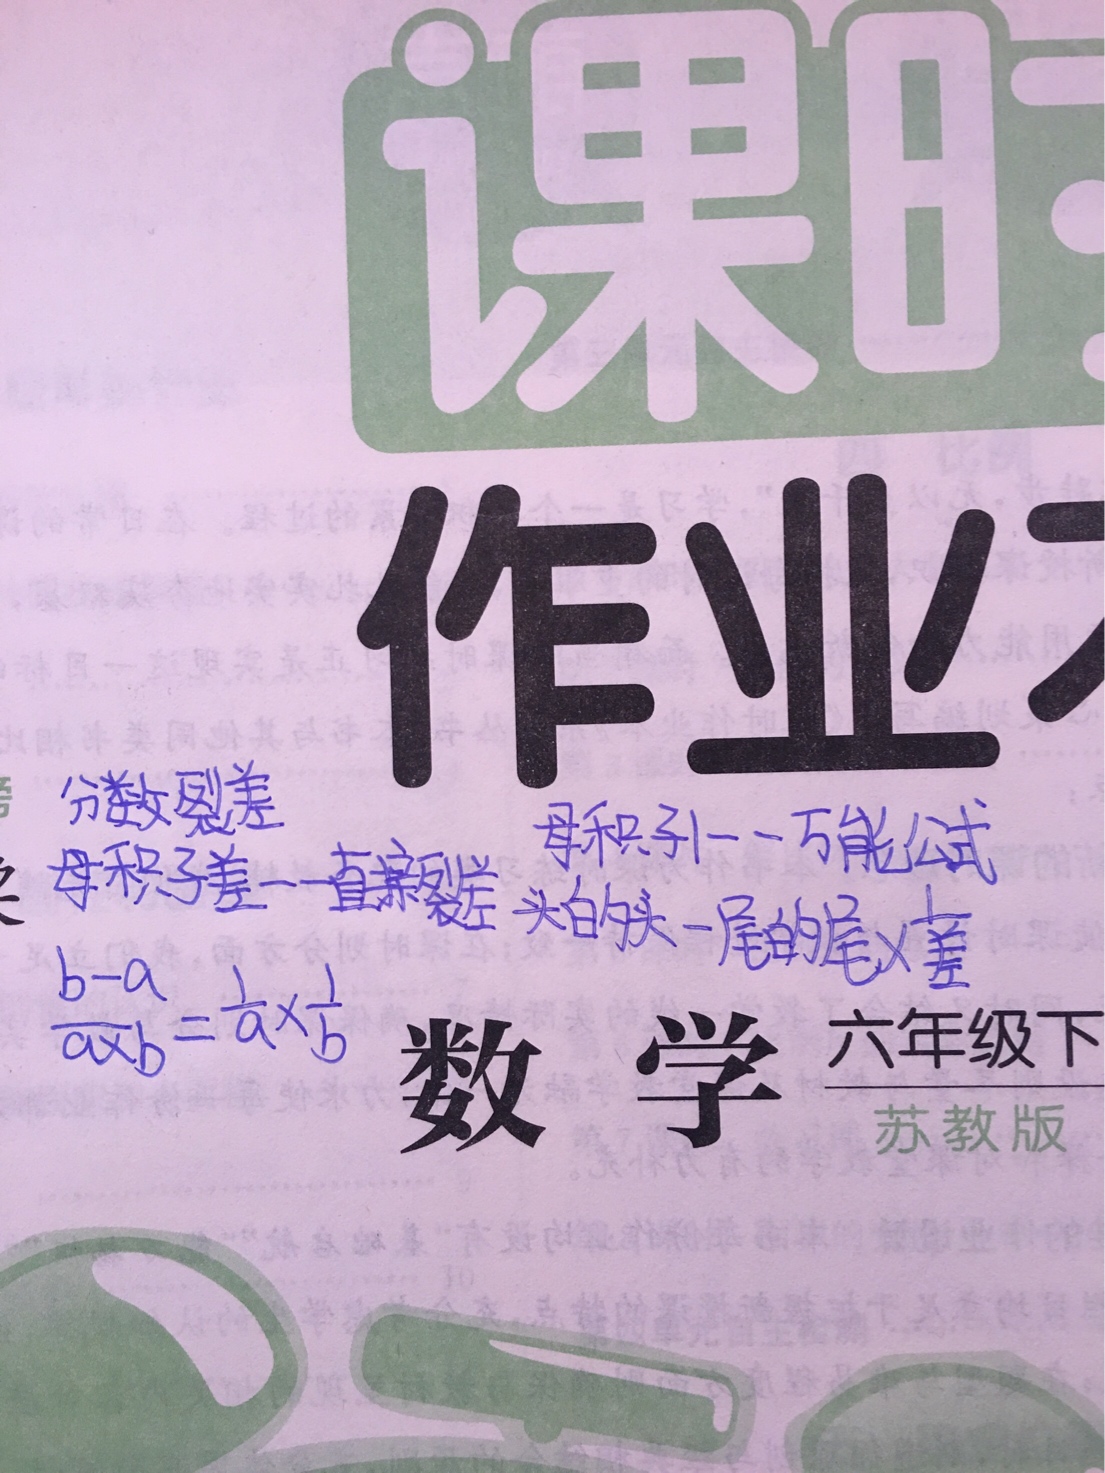 课时
作业
分数裂差
母积子差——直接裂差
b-a/a×b=1/a×1/b
母积子1——万能公式
头的头-尾的尾×1/差
数学
六年级下
苏教版